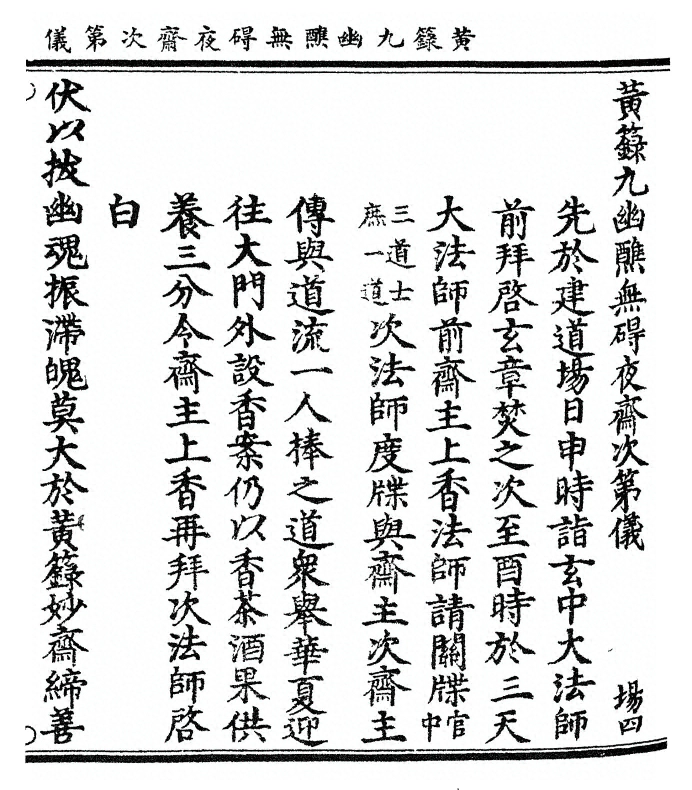 黃籙九幽醮無碍夜齋次第儀
黃籙九幽醮無碍夜齋次第儀 場四
先於建道場日申時詣玄中大法師
前拜啓玄章焚之次至酉時於三天
大法師前齋主上香法師請關牒官中
三道士庶一道次法師度牒與齋主次齋主
傳與道流一人捧之道衆舉華夏迎
往大門外設香案仍以香茶酒果供
養三分令齋主上香再拜次法師啓
白
伏以拔幽魂振滯魄莫大於黃籙妙齋締善